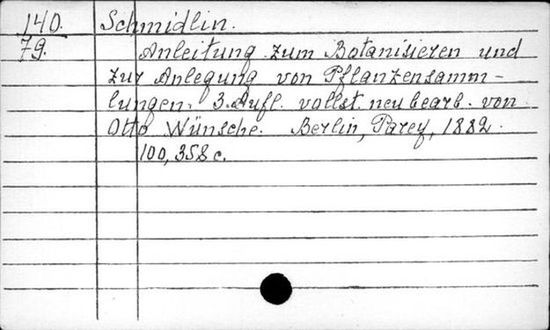 140. Schmidlin.
79. Anleitung zum Botanisieren und
zur Anlegung von Pflanzensamm-
lungen. 3. Aufl. vollst. neu bearb. von
Otto Wünsche. Berlin, Parey, 1882.
100,358c.